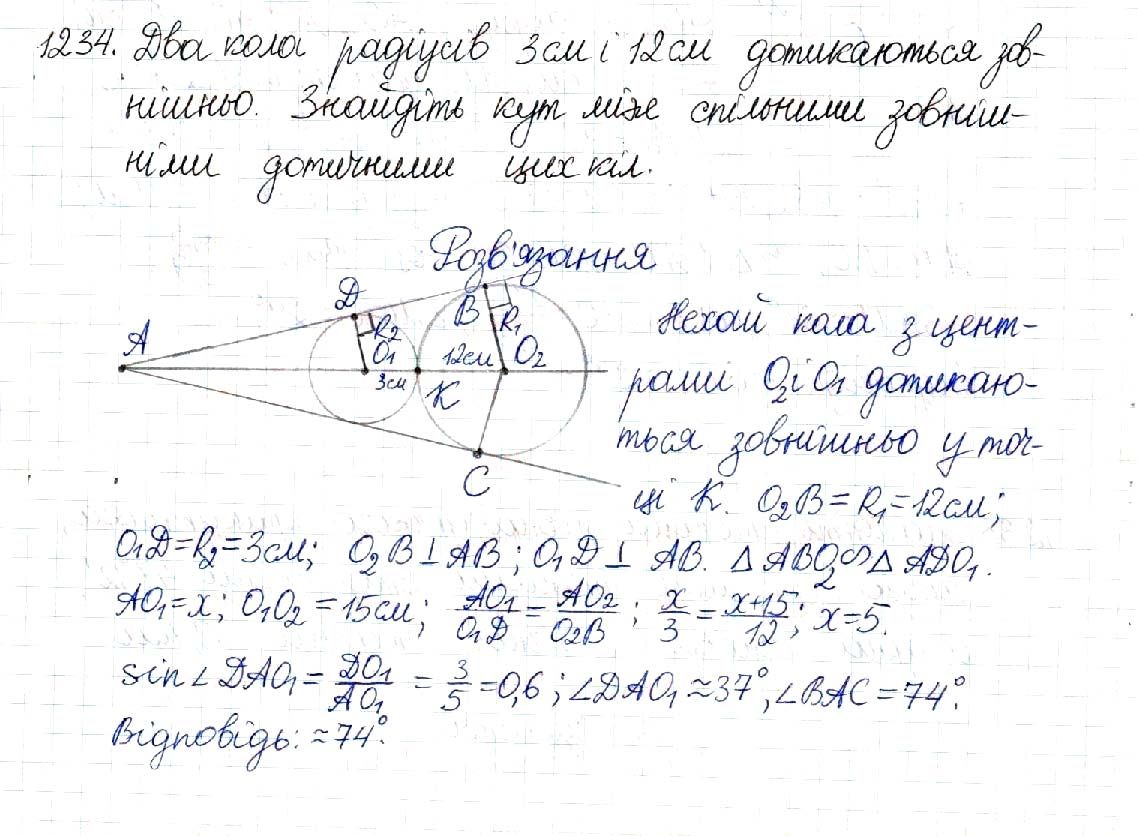 1234. Два кола радіусів 3 см і 12 см дотикаються зов-
нішньо. Знайдіть кут між спільними зовніш-
німи дотичними цих кіл.
Розв'язання
A
D
B
R₂
R₁
O₁
12см
O₂
3см
K
C
Нехай кола з цент-
рами O₂ і O₁ дотикаю-
ться зовнішньо у точ-
ці K. O₂B = R₁ = 12 см;
O₁D = R₂ = 3 см; O₂B ⊥ AB; O₁D ⊥ AB. △ABO₂ ∽ △ADO₁.
AO₁ = x; O₁O₂ = 15 см; AO₁/O₁D = AO₂/O₂B; x/3 = (x+15)/12; x = 5.
sin∠DAO₁ = DO₁/AO₁ = 3/5 = 0,6; ∠DAO₁ ≈ 37°, ∠BAC = 74°.
Відповідь: ≈ 74°.